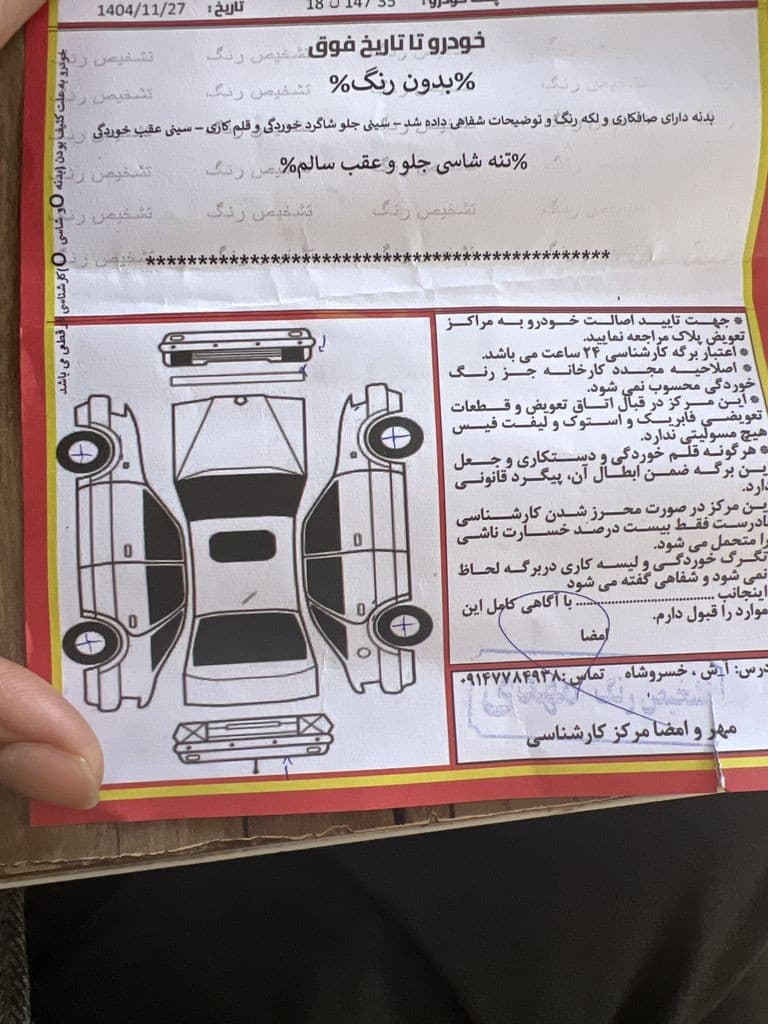 تاریخ: 1404/11/27
خودرو تا تاریخ فوق
%بدون رنگ%
بدنه دارای صافکاری و لکه رنگ و توضیحات شفاهی داده شد – سینی جلو شاگرد خوردگی و قلم کاری – سینی عقب خوردگی
%تنه شاسی جلو و عقب سالم%
********************************************
خودرو به علت کثیف بودن (بدنه O و شاسی O) کارشناسی غیر قطعی می باشد
* جهت تایید اصالت خودرو به مراکز
تعویض پلاک مراجعه نمایید.
* اعتبار برگه کارشناسی ۲۴ ساعت می باشد.
* اصلاحیه مجدد کارخانه جز رنگ
خوردگی محسوب نمی شود.
* این مرکز در قبال اتاق تعویض و قطعات
تعویضی فابریک و استوک و لیفت فیس
هیچ مسولیتی ندارد.
* هرگونه قلم خوردگی و دستکاری و جعل
این برگه ضمن ابطال آن، پیگرد قانونی
دارد.
این مرکز در صورت محرز شدن کارشناسی
نادرست فقط بیست درصد خسارت ناشی
را متحمل می شود.
تگرگ خوردگی و لیسه کاری دربرگه لحاظ
نمی شود و شفاهی گفته می شود
اینجانب .................................... با آگاهی کامل این
موارد را قبول دارم.
امضا
تماس: ۰۹۱۴۷۷۸۴۹۳۸
مهر و امضا مرکز کارشناسی